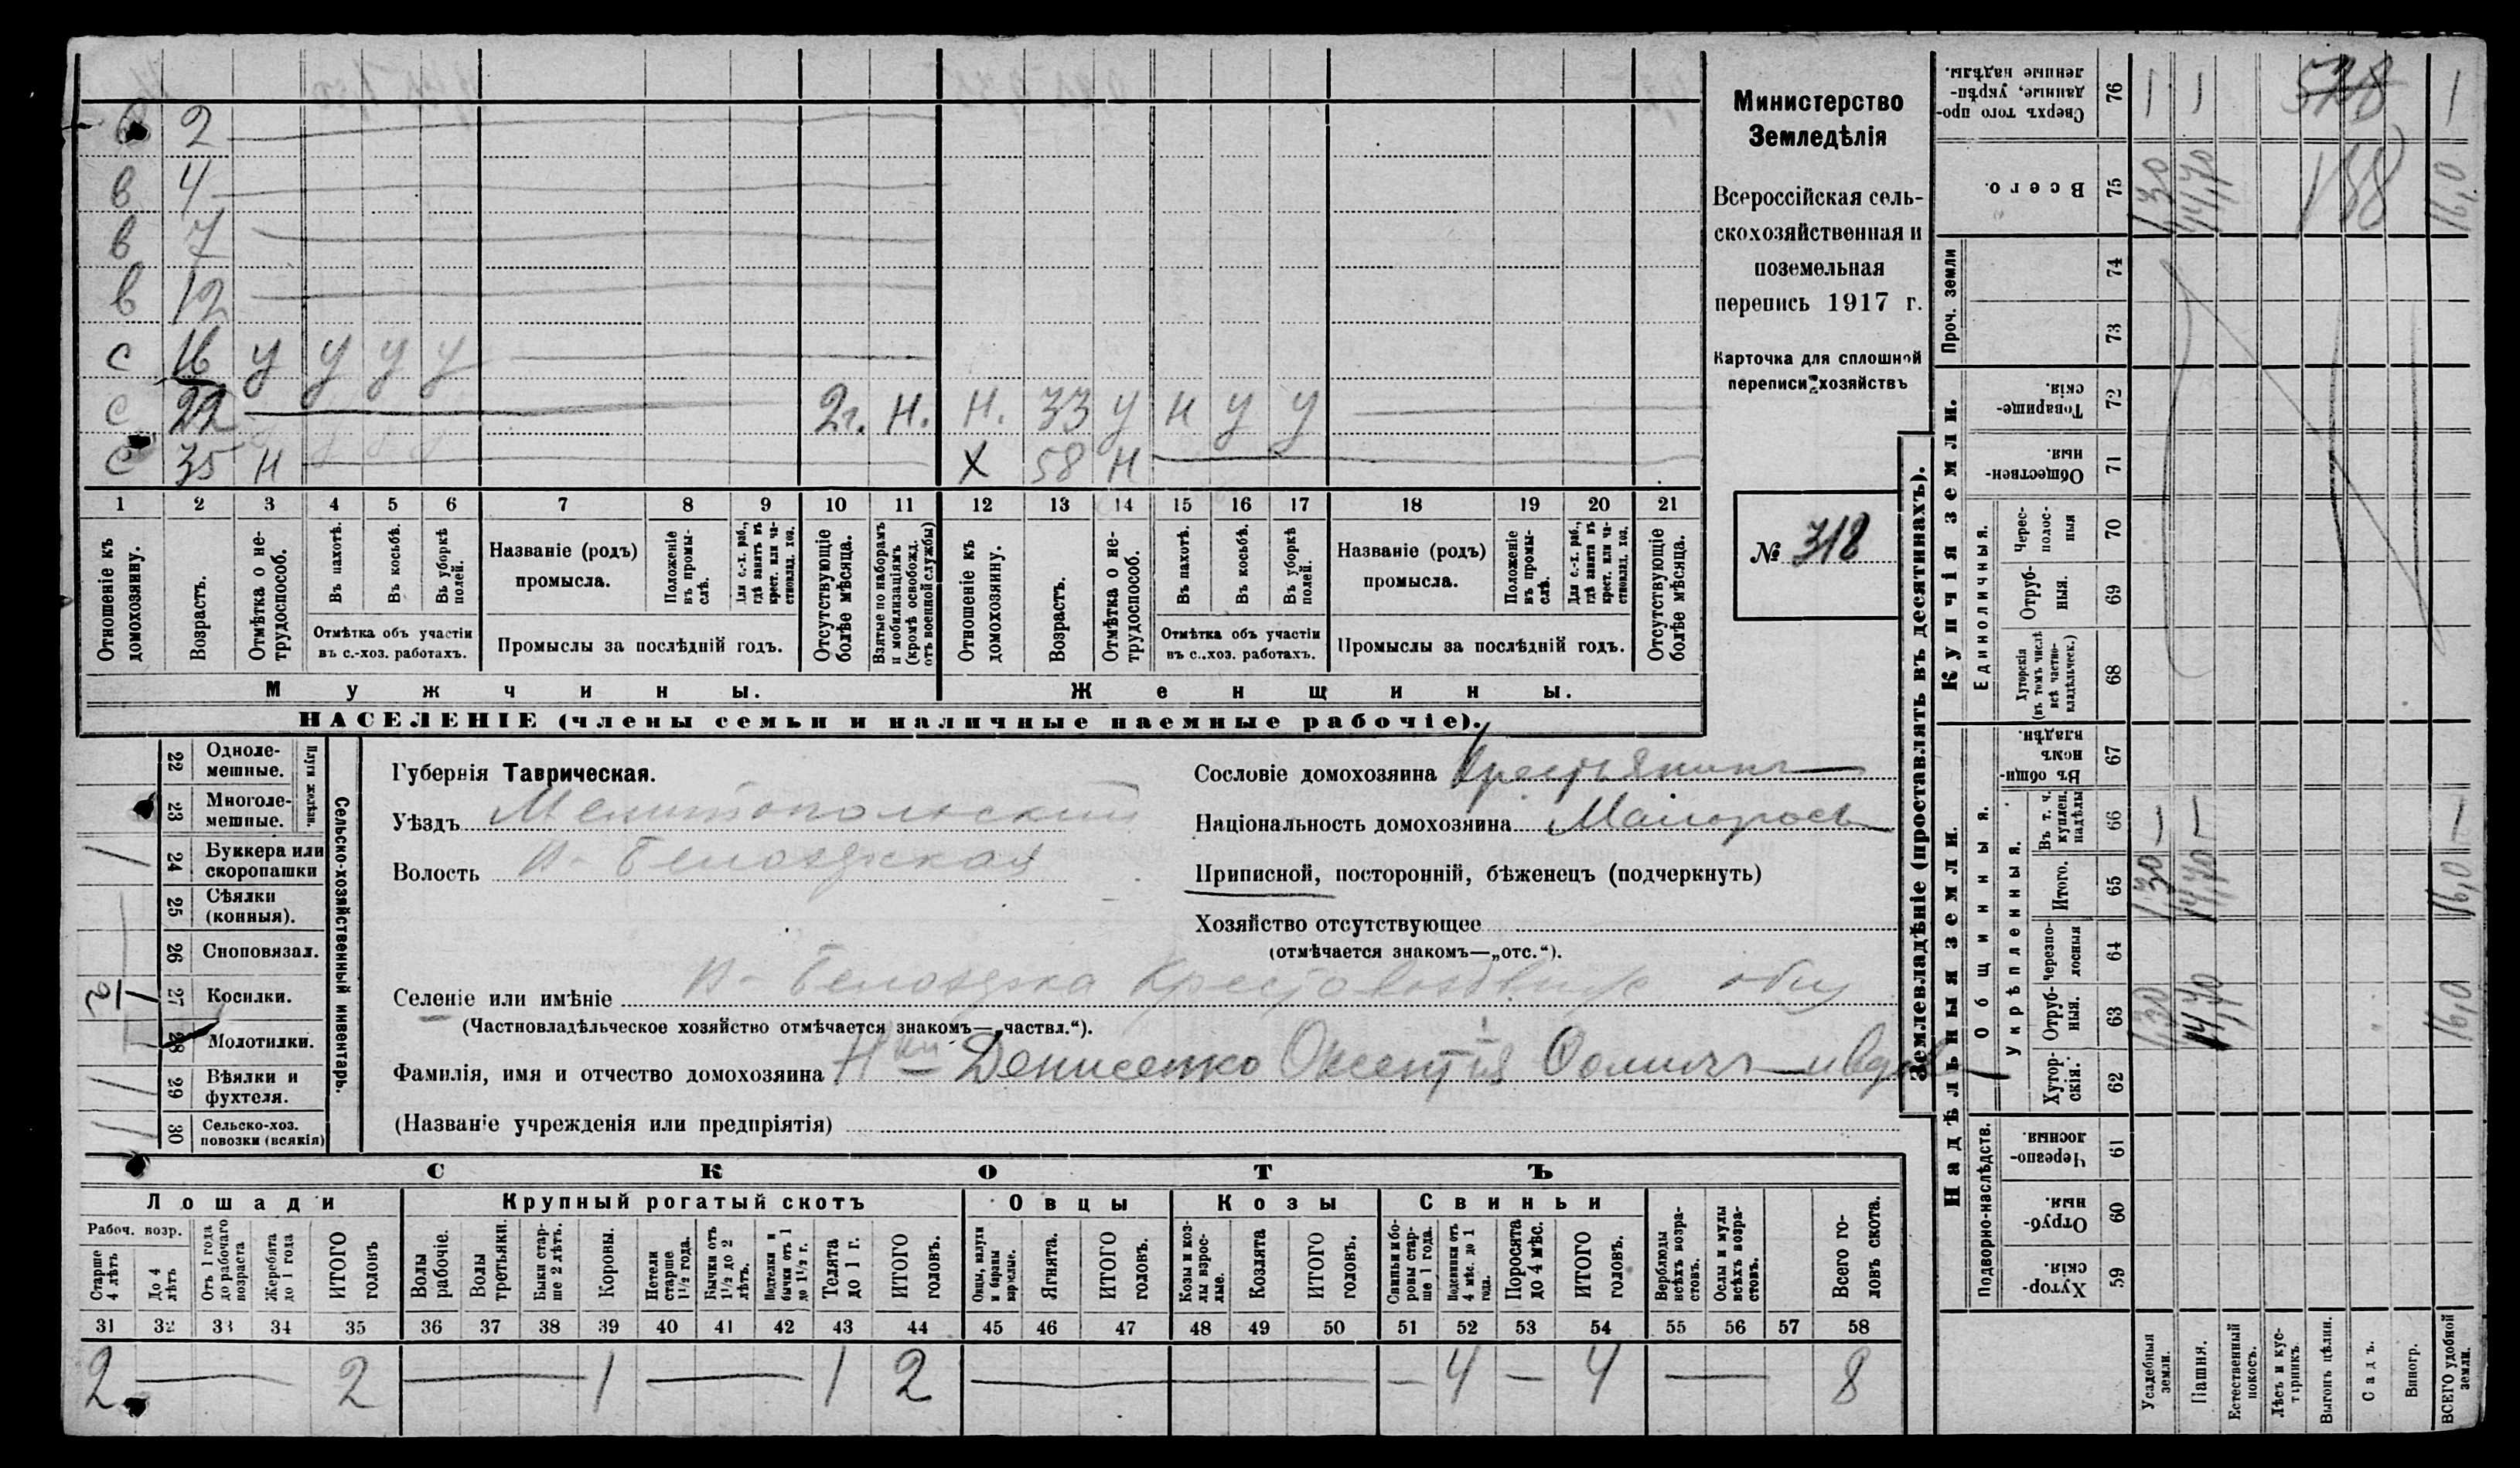 в 2
в 4
в 7
в 12
с 16 у у у у
с 22 2г. Н. Н. 33 у н у у
с 35 Н Х 58 Н
1 2 3 4 5 6 7 8 9 10 11 12 13 14 15 16 17 18 19 20 21
Отношеніе къ домохозяину.
Возрастъ.
Отмѣтка о нетрудоспособ.
Въ пахотѣ.
Въ косьбѣ.
Въ уборкѣ полей.
Отмѣтка объ участіи
въ с.-хоз. работахъ.
Названіе (родъ)
промысла.
Положеніе въ промыслѣ.
Для с.-х. раб., гдѣ занятъ въ крест. или частновлад. хоз.
Промыслы за послѣдній годъ.
Отсутствующіе болѣе мѣсяца.
Взятые по наборамъ и мобилизаціямъ (кромѣ освобожд. отъ военной службы)
Отношеніе къ домохозяину.
Возрастъ.
Отмѣтка о нетрудоспособ.
Въ пахотѣ.
Въ косьбѣ.
Въ уборкѣ полей.
Отмѣтка объ участіи
въ с.-хоз. работахъ.
Названіе (родъ)
промысла.
Положеніе въ промыслѣ.
Для с.-х. раб., гдѣ занята въ крест. или частновлад. хоз.
Промыслы за послѣдній годъ.
Отсутствующіе болѣе мѣсяца.
Мужчины.
Женщины.
НАСЕЛЕНІЕ (члены семьи и наличные наемные рабочіе).
Министерство
Земледѣлія
Всероссійская сель-
скохозяйственная и
поземельная
перепись 1917 г.
Карточка для сплошной
переписи хозяйствъ
№ 318
22 Одноле-
мешные.
23 Многоле-
мешные.
Плуги желѣзн.
24 Буккера или
скоропашки
25 Сѣялки
(конныя).
26 Сноповязал.
27 Косилки.
28 Молотилки.
29 Вѣялки и
фухтеля.
30 Сельско-хоз.
повозки (всякія)
Сельско-хозяйственный инвентарь.
Губернія Таврическая.
Уѣздъ Мелитопольский
Волость
Сословіе домохозяина Крестьянинъ
Національность домохозяина Малоросъ
Приписной, посторонній, бѣженецъ (подчеркнуть)
Хозяйство отсутствующее
(отмѣчается знакомъ—„отс.“).
Селеніе или имѣніе
(Частновладѣльческое хозяйство отмѣчается знакомъ—„частвл.“).
Фамилія, имя и отчество домохозяина Н-ки Денисенко
(Названіе учрежденія или предпріятія)
СКОТЪ
Лошади
Крупный рогатый скотъ
Овцы
Козы
Свиньи
Рабоч. возр.
Старше 4 лѣтъ
До 4 лѣтъ
Отъ 1 года до рабочаго возраста
Жеребята до 1 года
ИТОГО головъ
Волы рабочіе.
Волы третьяки.
Быки старше 2 лѣтъ.
Коровы.
Нетели старше 1½ года.
Бычки отъ 1½ до 2 лѣтъ.
Подтелки и бычки отъ 1 до 1½ г.
Телята до 1 г.
ИТОГО головъ.
Овцы, валухи и бараны взрослые.
Ягнята.
ИТОГО головъ.
Козы и козлы взрослые.
Козлята
ИТОГО головъ.
Свиньи и боровы старше 1 года.
Подсвинки отъ 4 мѣс. до 1 года.
Поросята до 4 мѣс.
ИТОГО головъ.
Верблюды всѣхъ возрастовъ.
Ослы и мулы всѣхъ возрастовъ.
Всего головъ скота.
31 32 33 34 35 36 37 38 39 40 41 42 43 44 45 46 47 48 49 50 51 52 53 54 55 56 57 58
2 — 2 — 1 — 1 2 — — 4 — 4 — 8
Землевладѣніе (проставлять въ десятинахъ).
Надѣльныя земли.
Купчія земли.
Проч. земли
Подворно-наслѣдств.
Общинныя.
Укрѣпленныя.
Единоличныя.
Хутор-скія. 59
Отруб-ныя. 60
Черезпо-лосныя. 61
Хутор-скія. 62
Отруб-ныя. 63
Черезпо-лосныя 64
Итого. 65
Въ т. ч. куплен. надѣлы 66
Въ общи-номъ владѣн. 67
Хуторскія (въ томъ числѣ всѣ частно-владѣльческ.) 68
Отруб-ныя. 69
Черес-полос-ныя 70
Обществен-ныя. 71
Товарище-скія. 72
73
74
Всего. 75
Сверхъ того про-данные, укрѣп-ленные надѣлы. 76
Усадебныя земли. 1,30 1,30 — 1,30
Пашня. 14,70 14,70 — 14,70
Естественный покосъ.
Лѣсъ и кустарникъ.
Выгонъ цѣлин.
Садъ.
Виногр.
ВСЕГО удобной земли. 16,0 16,0 — 16,0
188